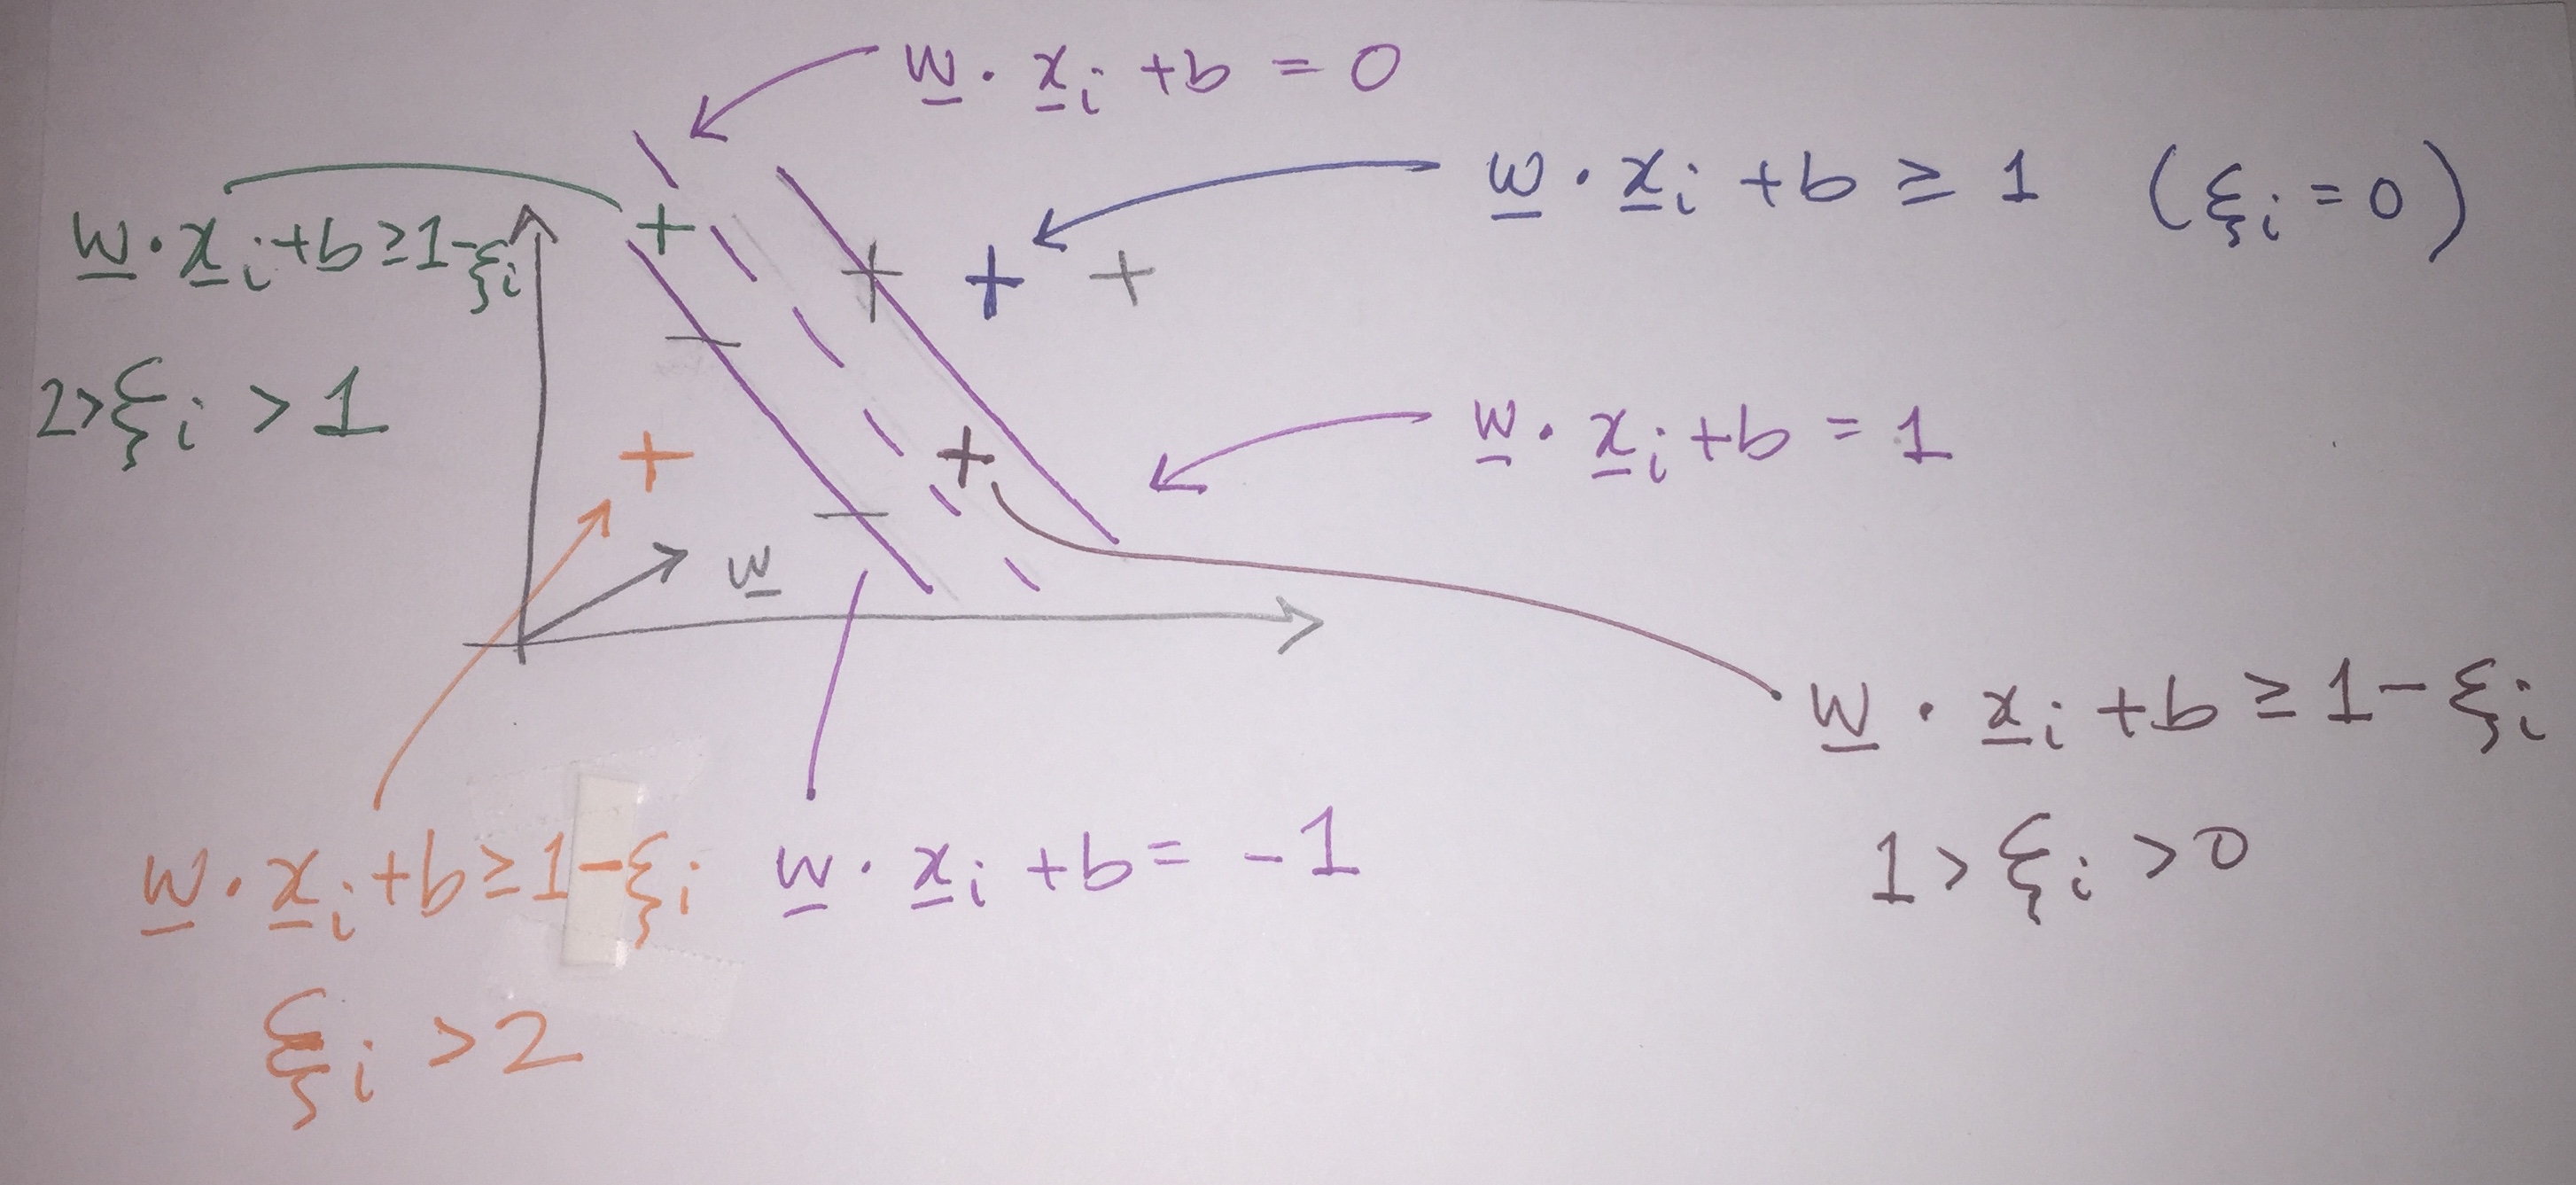 w̲ · x̲ᵢ + b = 0
w̲ · x̲ᵢ + b ≥ 1 (ξᵢ = 0)
w̲ · x̲ᵢ + b ≥ 1 - ξᵢ
2 > ξᵢ > 1
w̲ · x̲ᵢ + b = 1
w̲
w̲ · x̲ᵢ + b ≥ 1 - ξᵢ
1 > ξᵢ > 0
w̲ · x̲ᵢ + b ≥ 1 - ξᵢ
ξᵢ > 2
w̲ · x̲ᵢ + b = -1